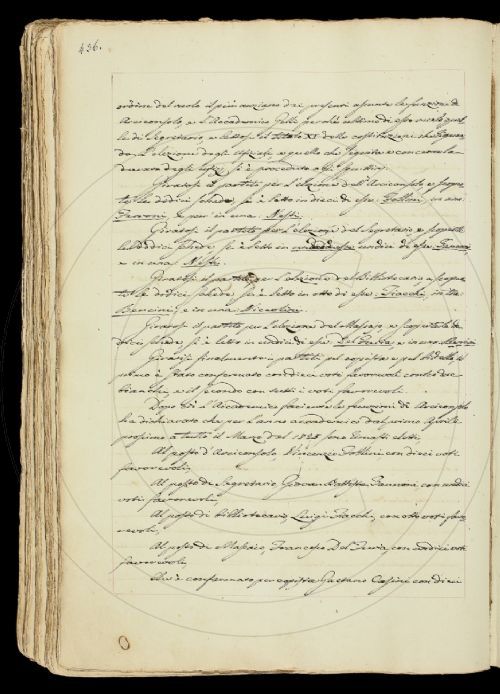 436.
ordine del ruolo il più anziano dei presenti assunte le funzioni di
Arciconsolo, e l'Accademico
di Segretario, e lettosi il titolo XI delle costituzioni che riguar
da l'elezione degli Uffiziali e quello che segreta e concerne la
durata degli Ufizi si è proceduto agli squittini.
Giratosi il partito per l'elezione dell'Arciconsolo, e scoper
te le dodici schede, si è letto in dieci di esse: Follini, in una
Zannoni, e pur in una: Nesti.
Giratosi il partito per l'elezione del Segretario e scoperte
le dodici schede si è letto in undici di esse: Zannoni,
e in una: Nesti.
Giratosi il partito per l'elezione del Bibliotecario e scoper
te le dodici schede, si è letto in otto di esse: Fiacchi, in tre
Bencini, e in una: Niccolini.
Giratosi il partito per l'elezione del Massajo e scoperte le do
dici schede si è letto in undici di esse: Del Furia, e in una
Giratisi finalmente i partiti pel copista e pel Bidello, il
primo è stato confermato con dieci voti favorevoli contro due
bianchi, e il secondo con tutti i voti favorevoli.
Dopo di che l'Accademico facente le funzioni di Arciconsolo
ha dichiarato che per l'anno accademico dal primo Aprile
prossimo a tutto il Marzo del 1825 sono rimasti eletti,
Al posto d'Arciconsolo, Vincenzio Follini con dieci voti
favorevoli,
Al posto di Segretario Giovan Battista Zannoni con undici
voti favorevoli,
Al posto di Bibliotecario, Luigi Fiacchi, con otto voti favo
revoli,
Al posto di Massaio, Francesco Del Furia, con undici voti
favorevoli,
Ed è confermato per copista Gaetano Casini con dieci